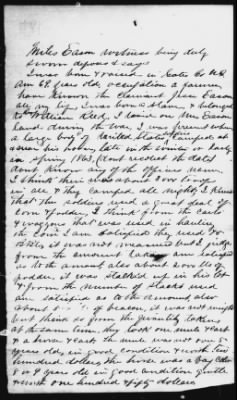 Miles Eason witness being duly
sworn deposes & says
I was born & raised in Gates Co N.C.
Am 62 years old, occupation a farmer,
have known the claimant Jesse Eason
all my life, I was born a slave, & belonged
to William Reed, I lived on Mr Eason
land during the war, I was present when
a large body of United States camped at
near his house, late in the winter or early
in spring 1863, don't recollect the date
dont know any of the officers name,
I think there was
in all & they camped all night, I know
that the soldiers used a great deal of
corn & fodder, I think from the carts
& wagons that was used in hauling
the corn I am satisfied they used
bbls, it was not measured but I judge
from the amount taken am satisfied
as to the amount also about
fodder, it was stacked up in his lot
& from the number of stacks used
am satisfied as to the amount also
about of bacon, it was not weight
but think so from the quantity taken
at the same time, they took one mule & cart
& a horse & cart the mule was not over
years old, in good condition & worth two
hundred dollars the horse was a bay
8 or 9 years old in good condition gentle
& worth one hundred fifty dollars